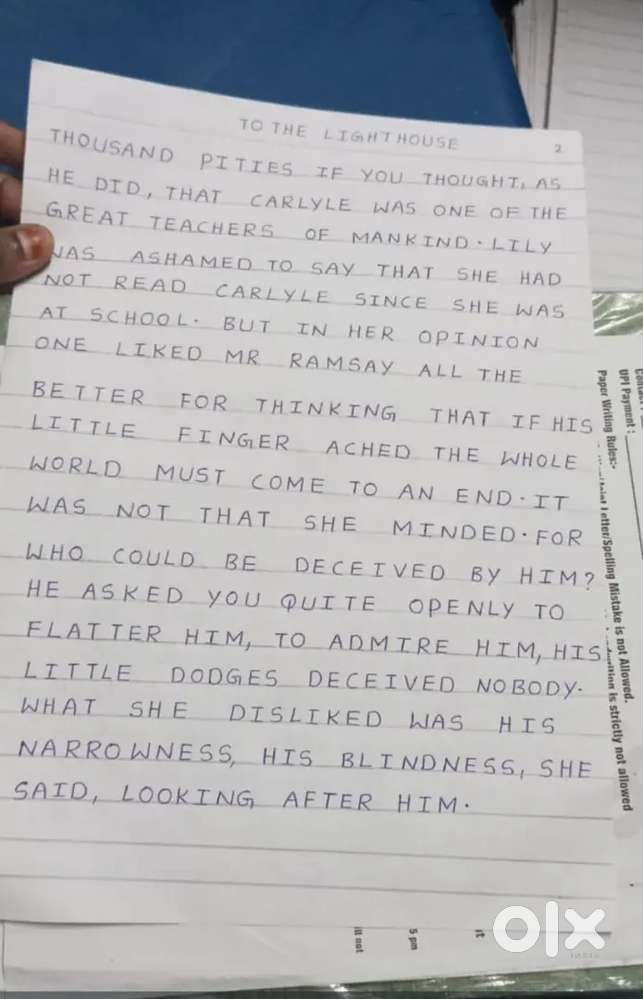 TO THE LIGHTHOUSE 2
THOUSAND PITIES IF YOU THOUGHT, AS
HE DID, THAT CARLYLE WAS ONE OF THE
GREAT TEACHERS OF MANKIND. LILY
WAS ASHAMED TO SAY THAT SHE HAD
NOT READ CARLYLE SINCE SHE WAS
AT SCHOOL. BUT IN HER OPINION
ONE LIKED MR RAMSAY ALL THE
BETTER FOR THINKING THAT IF HIS
LITTLE FINGER ACHED THE WHOLE
WORLD MUST COME TO AN END. IT
WAS NOT THAT SHE MINDED. FOR
WHO COULD BE DECEIVED BY HIM?
HE ASKED YOU QUITE OPENLY TO
FLATTER HIM, TO ADMIRE HIM, HIS
LITTLE DODGES DECEIVED NOBODY.
WHAT SHE DISLIKED WAS HIS
NARROWNESS, HIS BLINDNESS, SHE
SAID, LOOKING AFTER HIM.
UPI Payment:
Paper Writing Rules:-
Letter/Spelling Mistake is not Allowed.
is strictly not allowed
ill not
5 pm
it
olx
INDIA